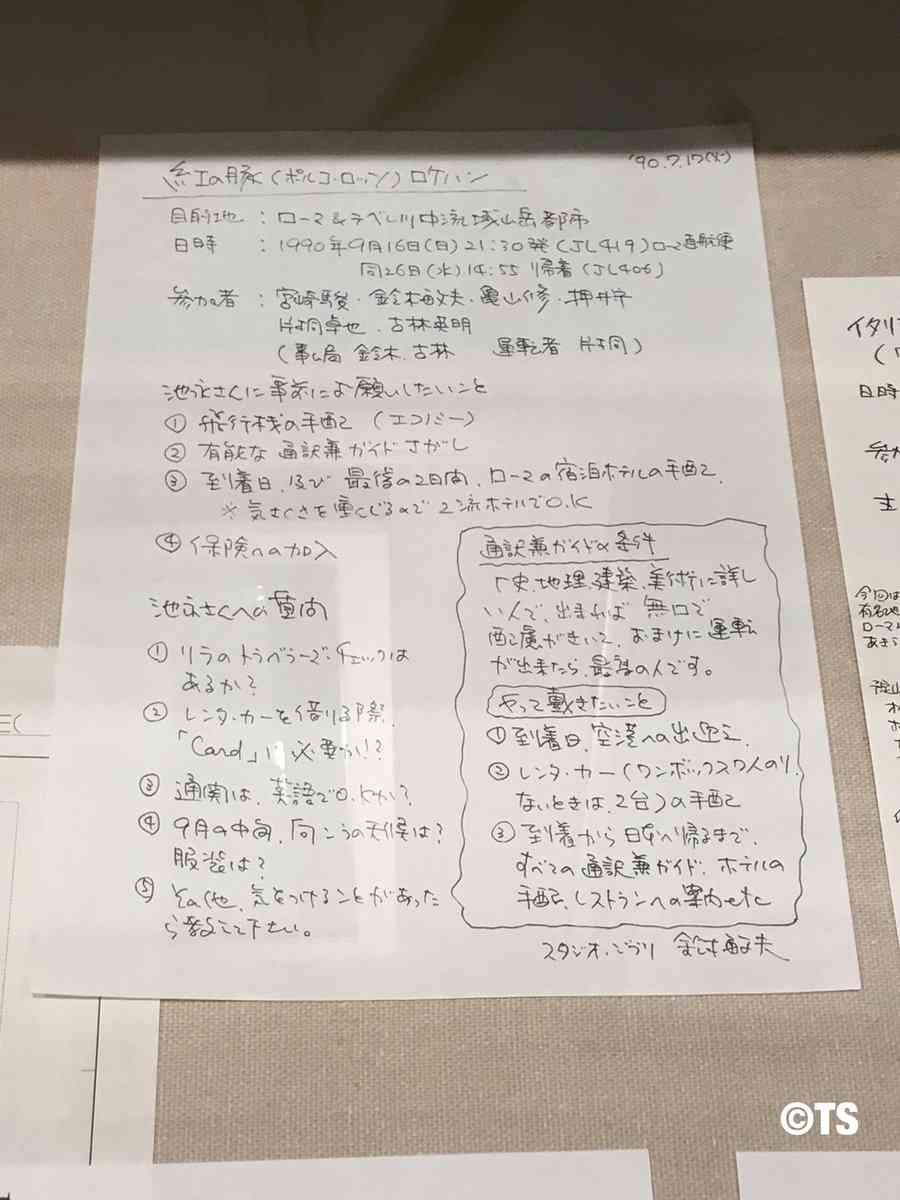 '90.7.17(火)
紅の豚(ポルコ・ロッソ)ロケハン
目的地 : ローマ&テベレ川中流域山岳都市
日時 : 1990年9月16日(日)21:30発(JL419)ローマ直航便
同26日(水)14:55 帰着(JL406)
参加者 : 宮崎駿・鈴木敏夫・亀山修・押井守
片桐卓也、古林英明
(事ム局 鈴木、古林 運転者 片桐)
池永さんに事前にお願いしたいこと
① 飛行機の手配 (エコノミー)
② 有能な通訳兼ガイドさがし
③ 到着日、及び 最後の2日間、ローマの宿泊ホテルの手配
※ 気さくさを重んじるので2流ホテルでO.K
④ 保険への加入
池永さんへの質問
① リラのトラベラーズ・チェックは
あるか?
② レンタ・カーを借りる際、
「Card」は必要か!?
③ 通関は、英語でO.Kか?
④ 9月の中旬、向こうの天候は?
服装は?
⑤ その他、気をつけることがあった
ら教えて下さい。
通訳兼ガイドの条件
歴史、地理、建築、美術に詳し
い人で、出来れば 無口で
配慮がきいて、おまけに運転
が出来たら、最高の人です。
やって戴きたいこと
① 到着日、空港への出迎え、
② レンタ・カー(ワンボックス7人のり、
ないときは、2台)の手配
③ 到着から日本へ帰るまで、
すべての通訳兼ガイド、ホテルの
手配、レストランへの案内etc
スタジオ・ジブリ 鈴木敏夫
イタリア
日時
参加
主
今回は
有名な
ローマ
©TS